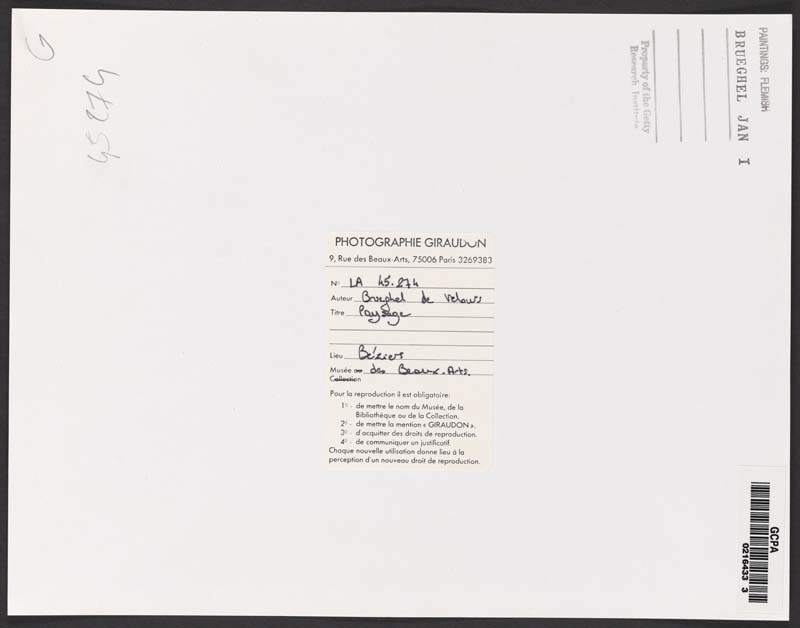 G
45274
PAINTINGS: FLEMISH
BRUEGHEL JAN I
Property of the Getty
Research Institute
PHOTOGRAPHIE GIRAUDON
9, Rue des Beaux-Arts, 75006 Paris 3269383
N° LA 45.274
Auteur Brueghel de Velours
Titre Paysage
Lieu Béziers
Musée ou des Beaux-Arts.
Collection
Pour la reproduction il est obligatoire:
1° - de mettre le nom du Musée, de la
Bibliothèque ou de la Collection.
2° - de mettre la mention « GIRAUDON ».
3° - d'acquitter des droits de reproduction.
4° - de communiquer un justificatif.
Chaque nouvelle utilisation donne lieu à la
perception d'un nouveau droit de reproduction.
GCPA
0216433 3